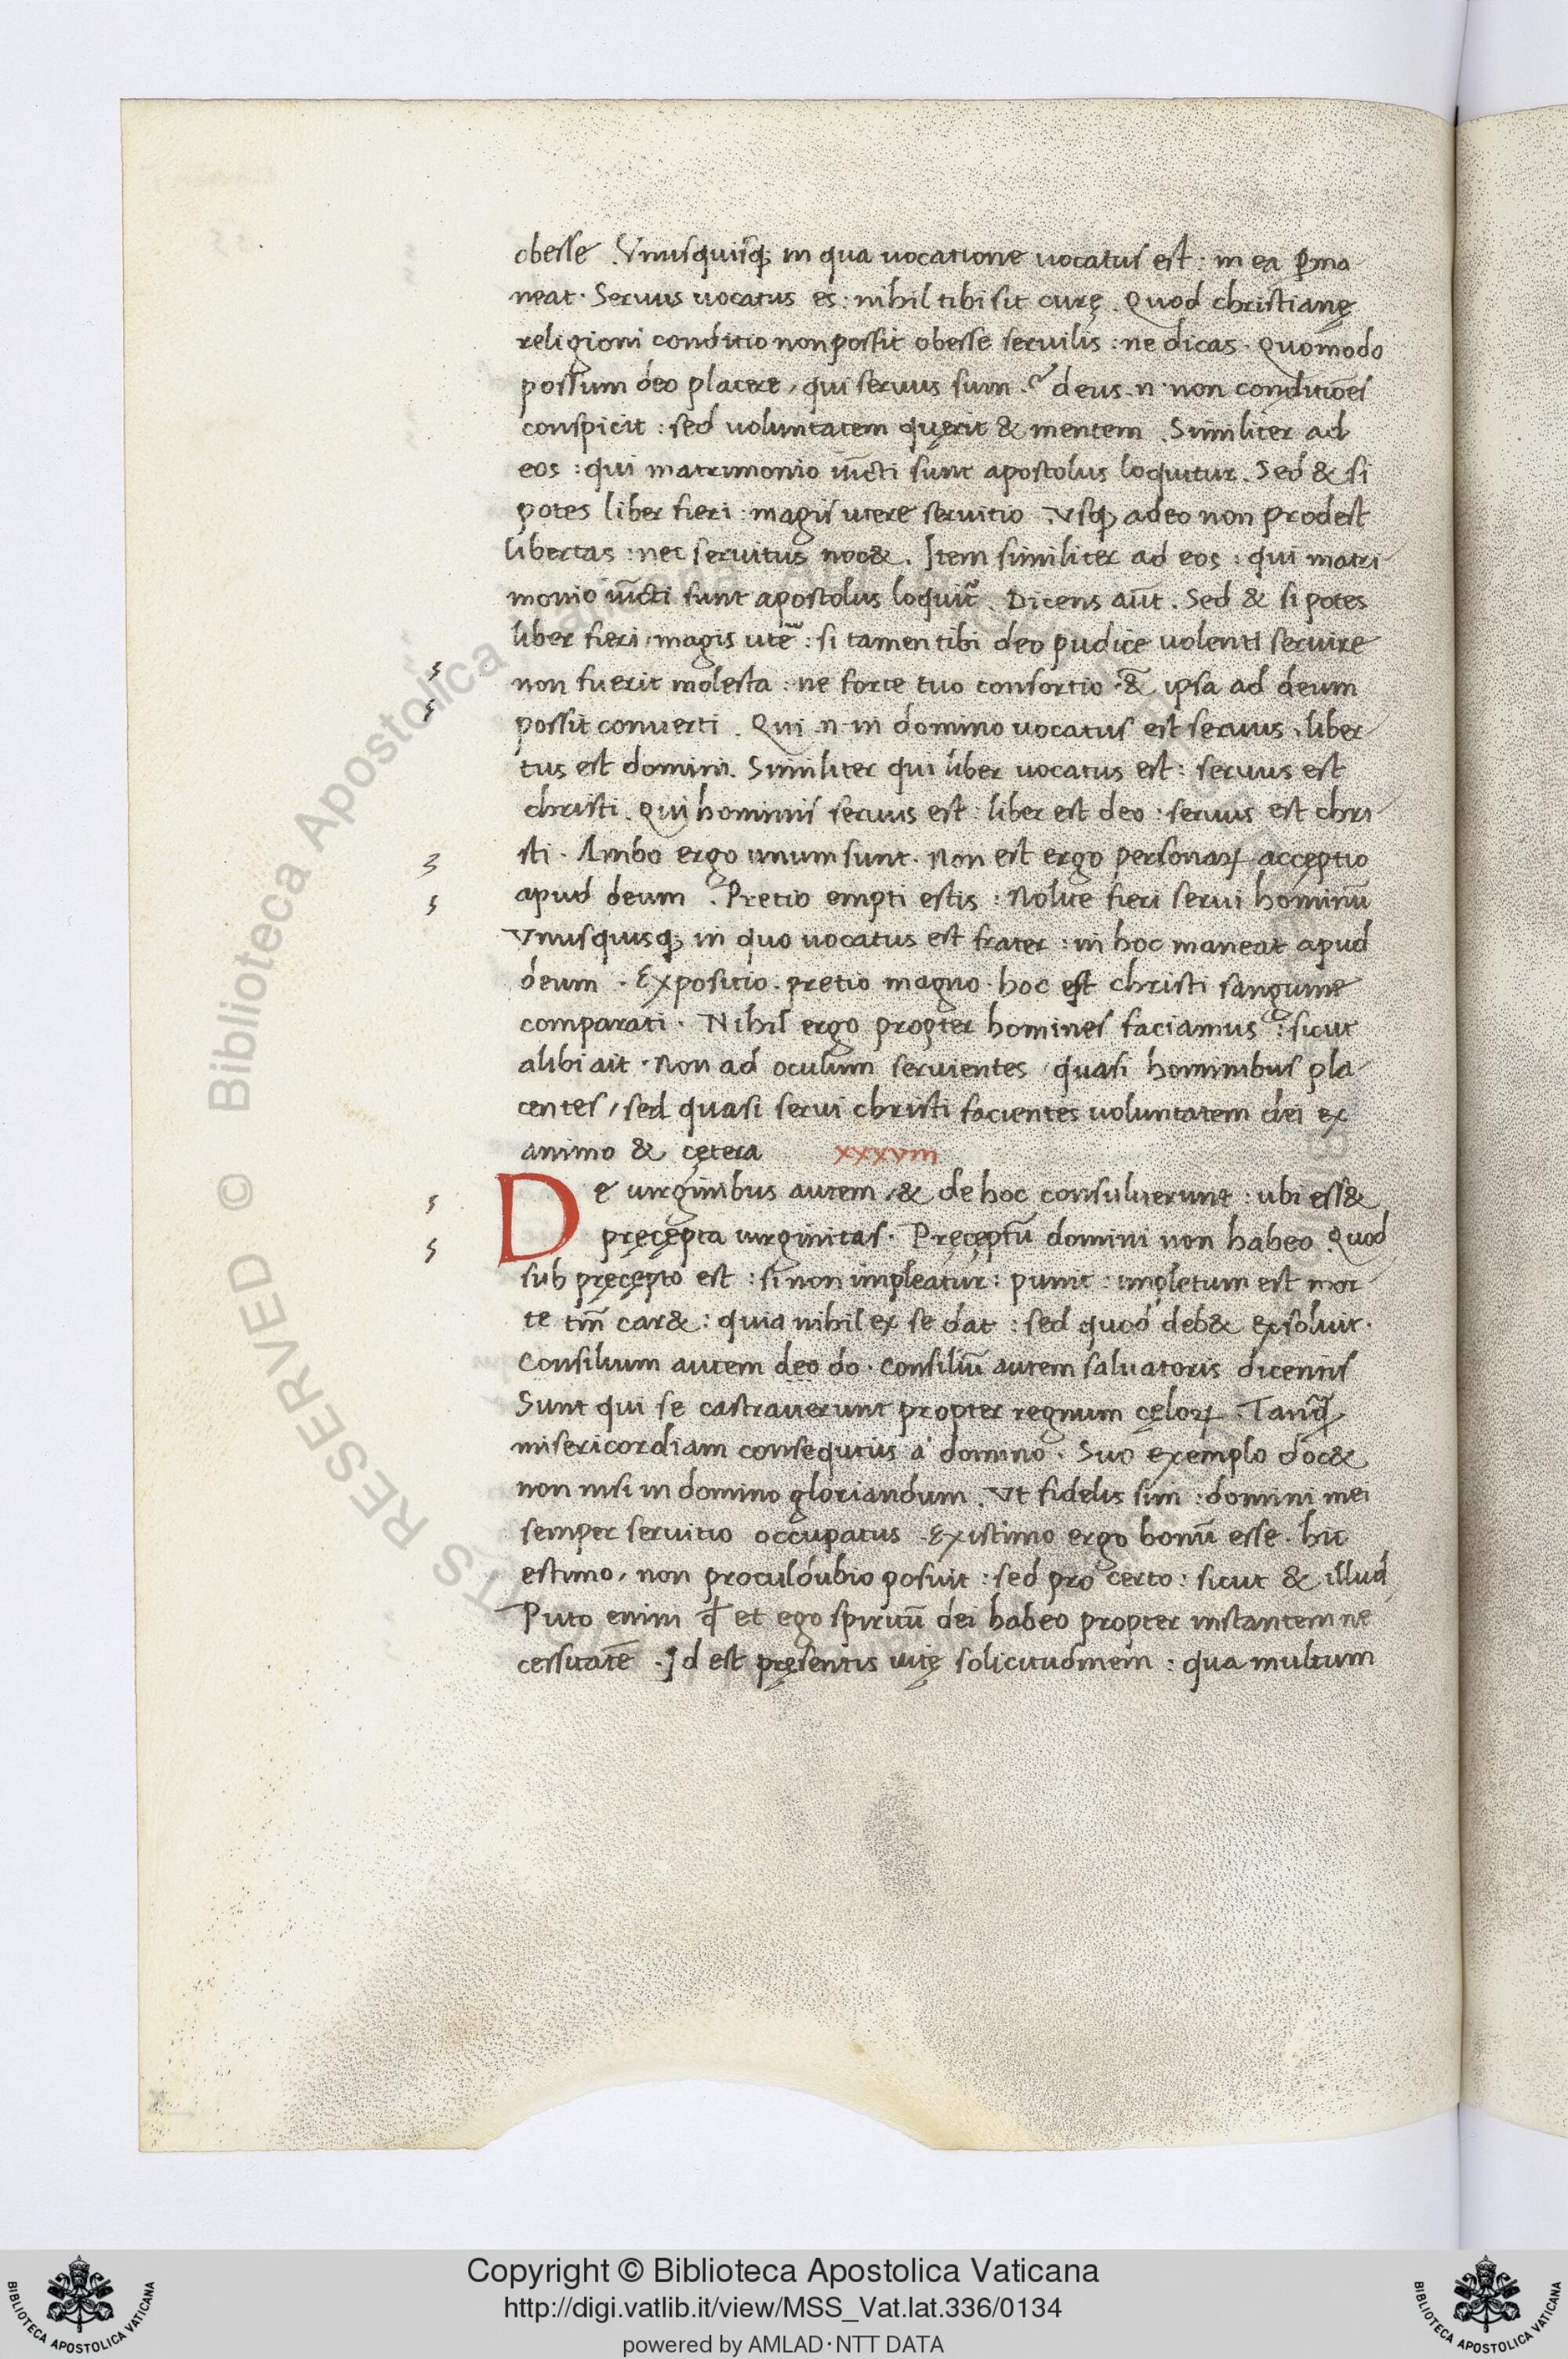 obesse. Vnusquisq; in qua uocatione uocatus est: in ea ꝑma
neat. Seruus uocatus es: nihil tibi sit curę. Quod christianę
religioni conditio non possit obesse seruilis: ne dicas. Quomodo
possum deo placere, qui seruus sum? deus .n. non conditiōes
conspicit: sed uoluntatem quęrit & mentem. Similiter ad
eos: qui matrimonio iūcti sunt apostolus loquitur. Sed & si
potes liber fieri: magis utere seruitio. Vsq; adeo non prodest
libertas: nec seruitus noc&. Item similiter ad eos: qui matri
monio iūcti sunt apostolus loquit̃. Dicens aūt. Sed & si potes
liber fieri, magis utē: si tamen tibi deo pudice uolenti seruire
non fuerit molesta: ne forte tuo consortio & ipsa ad deum
possit conuerti. Qui .n. in domino uocatus est seruus, liber
tus est domini. Similiter qui liber uocatus est: seruus est
christi. Qui hominis seruus est: liber est deo. seruus est chri
sti. Ambo ergo unum sunt. Non est ergo personaꝝ acceptio
apud deum. Pretio empti estis: Nolite fieri serui hominū
Vnusquisq; in quo uocatus est frater: in hoc maneat apud
deum. Expositio. pretio magno. hoc est christi sanguine
comparati. Nihil ergo propter homines faciamus: sicut
alibi ait. Non ad oculum seruientes, quasi hominibus pla
centes, sed quasi serui christi facientes uoluntatem dei ex
animo & cętera xxxvııı
De uirginibus autem, & de hoc consuluerunt: ubi ess&
pręcępta uirginitas. Pręcęptū domini non habeo. Quod
sub pręcępto est: si non impleatur: punit: impletum est mor
te tm̄ car&: quia nihil ex se dat: sed quod deb& exsoluit.
Consilium autem deo do. Consiliū autem saluatoris dicentis
Sunt qui se castrauerunt propter regnum cęloꝝ. Tanq̃
misericordiam consequtus a domino. Suo exemplo doc&
non nisi in domino gloriandum. Vt fidelis sim: domini mei
semper seruitio occupatus. Existimo ergo bonū esse. hic
estimo, non proculdubio posuit: sed pro certo: sicut & illud
Puto enim ꝙ et ego spiritū dei habeo propter instantem ne
cessitatē. Id est pręsentis uitę solicitudinem: qua multum
Copyright © Biblioteca Apostolica Vaticana
http://digi.vatlib.it/view/MSS_Vat.lat.336/0134
powered by AMLAD·NTT DATA